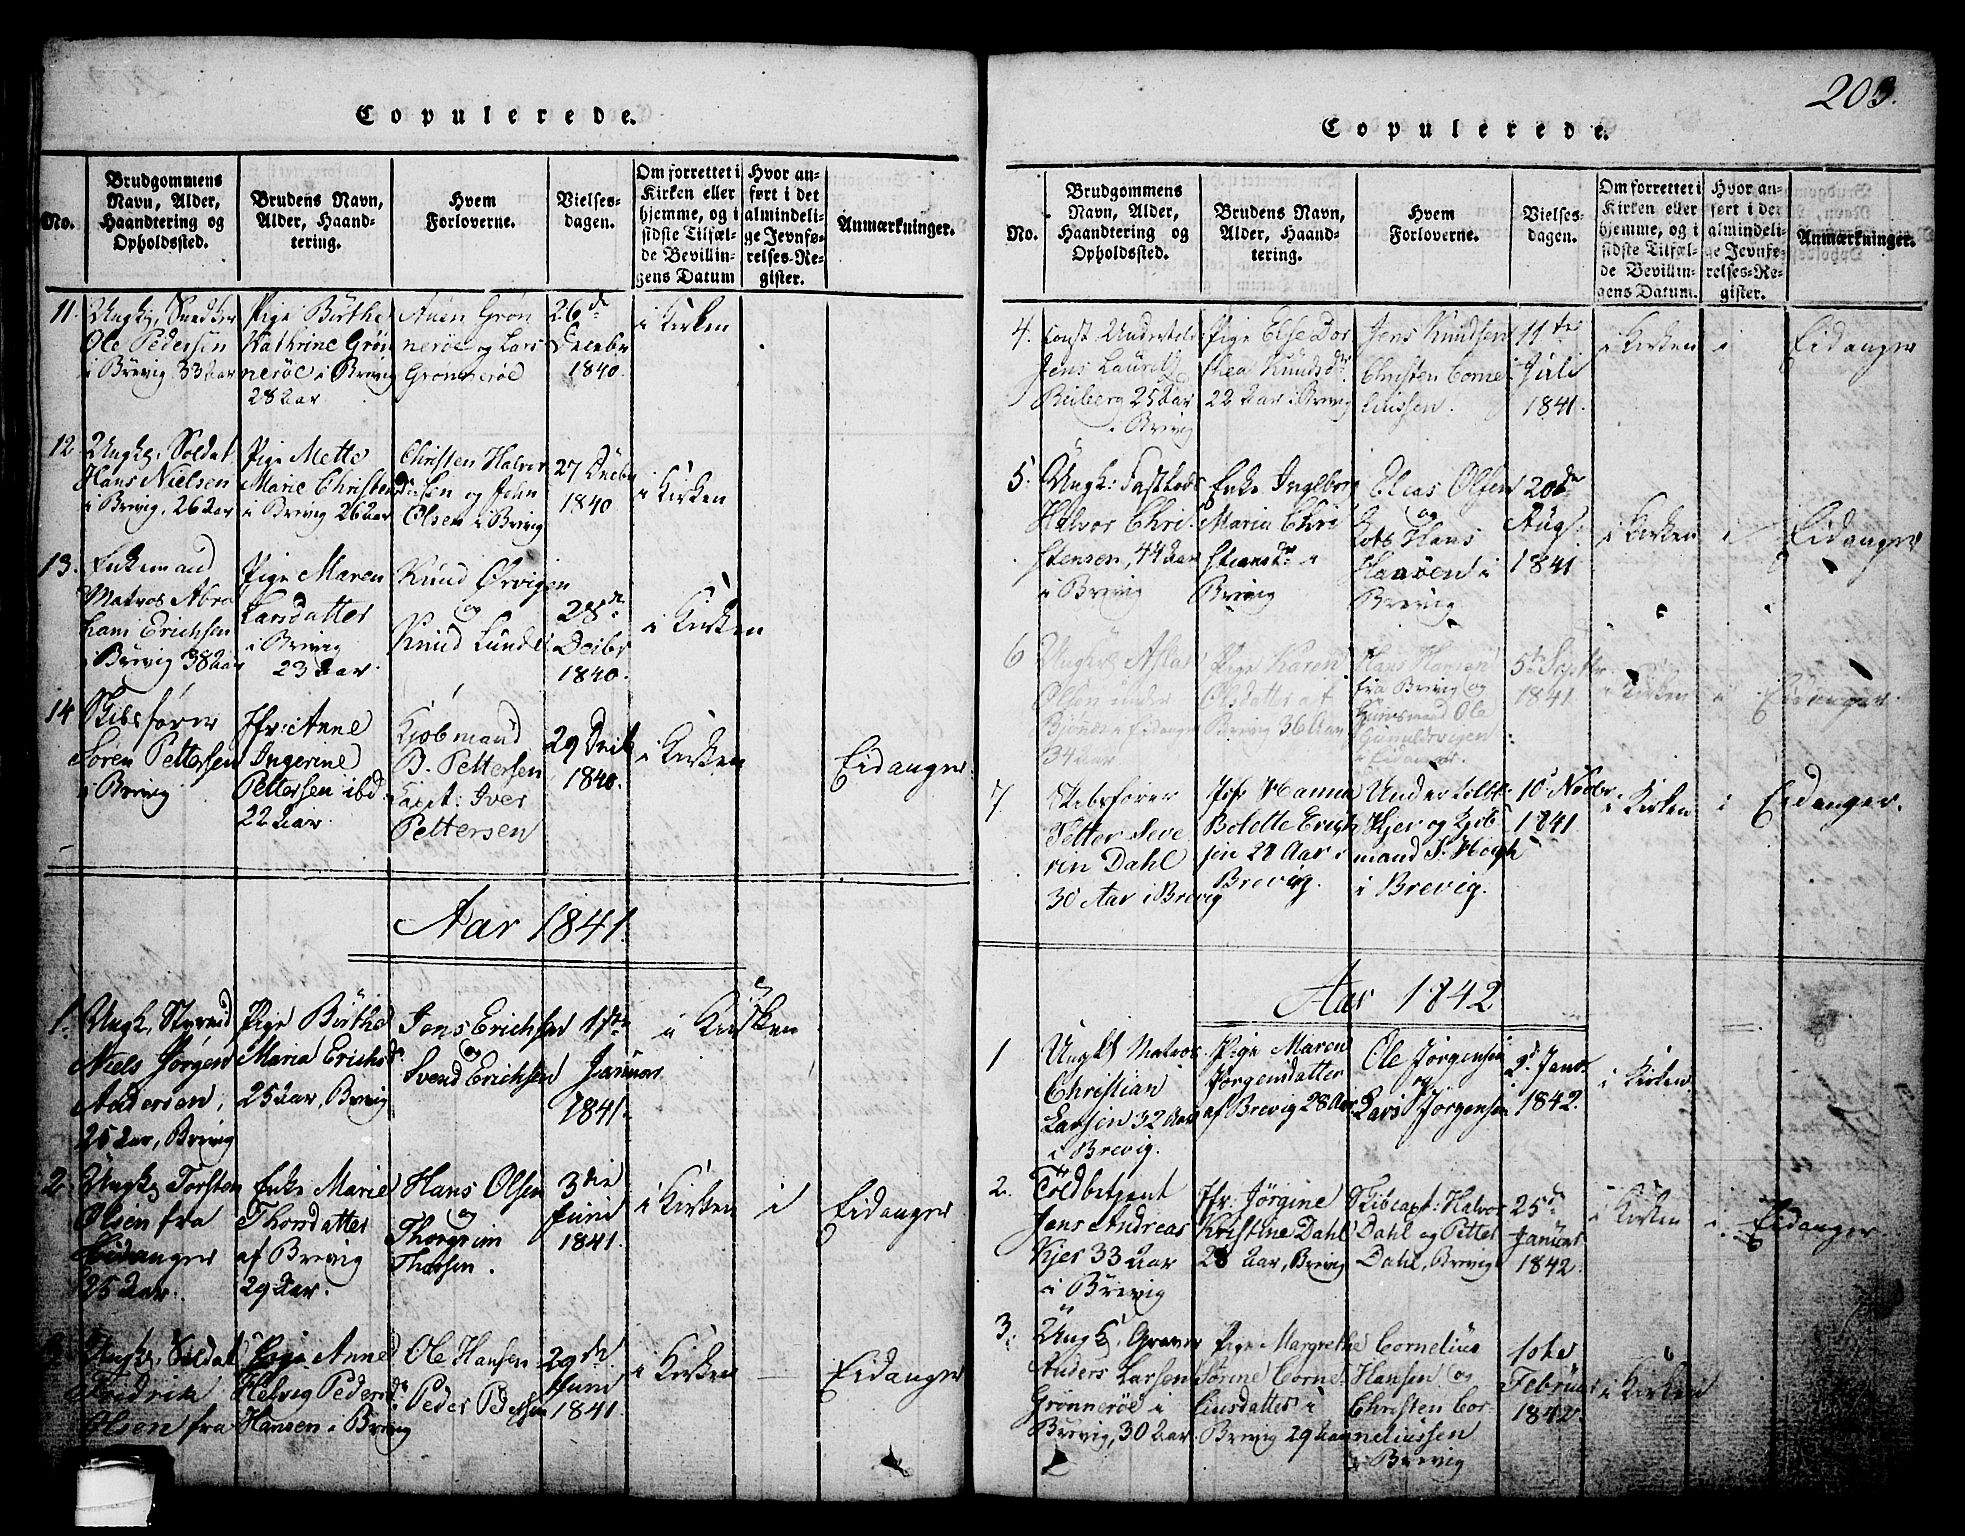 Copulerede.
No.
Brudgommens Navn, Alder, Haandtering og Opholdssted.
Brudens Navn, Alder, Haandtering.
Hvem Forloverne.
Vielsesdagen.
Om forrettet i Kirken eller hjemme, og i sidste Tilfælde Bevillingens Datum
Hvor anført i det almindelige Jevnførelses-Register.
Anmærkninger.
11.
Ungk. Snedker
Ole Pedersen
i Brevig 33 Aar
Pige Birthe
Kathrine Grön
neröe i Brevig
28 Aar
Grön
neröe og Lars
Gronneröe
26de
Decebr
1840.
i Kirken
12
Ungk. Soldat
Hans Nielsen
i Brevig, 26 Aar
Pige Mette
Marie Christensdr
i Brevig 26 Aar
Christen Halvor
sen og John
Olsen i Brevig
27 Decbr
1840
i Kirken
13.
Enkemand
Matros Abra
ham Erichsen
i Brevig 38 Aar
Pige Maren
Larsdatter
i Brevig
23 Aar.
Knud Ørvigen
og
Knud Lunde
28de
Decbr
1840.
i Kirken
14
Skibsfører
Søren Pettersen
i Brevig
Jfr: Anne
Ingerine
Pettersen ibd
22 Aar.
Kjøbmand
B. Pettersen
Capt: Iver
Pettersen
29 Decbr
1840.
i Kirken
Eidanger
Aar 1841.
1.
Ungk. Styrmd
Niels Jörgen
Andersen,
25 Aar, Brevig
Pige Birthe
Maria Erichsdr
25 Aar, Brevig
Jens Erichsen
og
Svend Erichsen
1ste
Januar
1841.
i Kirken
2
Ungk. Torsten
Olsen fra
Eidanger
25 Aar.
Enke Marie
Thordatter
af Brevig
29 Aar.
Hans Olsen
og
Thorgrim
Thorsen.
3die
Juni
1841.
i Kirken
i
Eidanger
3
Ungk. Soldat
Fredrik
Olsen fra
Pige Anne
Helvig Pedersdr
Hansen i Brevig
Ole Hansen
Peder Pedersen
29de
Juni
1841.
i Kirken
Eidanger
203.
Copulerede.
No.
Brudgommens Navn, Alder, Haandtering og Opholdssted.
Brudens Navn, Alder, Haandtering.
Hvem Forloverne.
Vielsesdagen.
Om forrettet i Kirken eller hjemme, og i sidste Tilfælde Bevillingens Datum.
Hvor anført i det almindelige Jevnførelses-Register.
Anmærkninger.
4.
Const. Undertold
Jens Laurits
Ruberg 25 Aar
i Brevig
Pige Else Dor
thea Knudsdr
22 Aar i Brevig
Jens Knudsen
Christen Corne
liussen.
11te
Juli
1841.
i Kirken
i
Eidanger
5.
Ungk:
Halvor Chri
stensen, 44 Aar
i Brevig
Enke Ingeborg
Maria Chri
stiansdr i
Brevig
Elias Olsen
og
Lots Hans
Hansen i
Brevig
20de
Aug.
1841
i Kirken
i
Eidanger
6
Ungkrl Aslak
Olsen under
Bjønnes i Eidanger
34 Aar
Pige Karen
Olsdatter af
Brevig 36 Aar
Hans Hansen
fra Brevig og
Ole
i Eidanger.
5te Septbr
1841
i Kirken
i
Eidanger.
7
Skibsfører
Petter Seve
rin Dahl
30 Aar i Brevig
Jfr Hanna
Bolette Erich
sen 28 Aar i
Brevig.
Undertoldb:
Kjer og Kjøb
mand S. Høgh
i Brevig.
10. Novbr.
1841
i Kirken
i
Eidanger.
Aar 1842
1
Ungk Matros
Christian
Larsen 32 Aar
i Brevig.
Pige Maren
Jørgensdatter
af Brevig 28 Aar
Ole Jørgensen
og
Lars Jørgensen
2d Janr
1842.
i Kirken
2.
Toldbetjent
Jens Andreas
Kjer 33 Aar
i Brevig
Jfr: Jörgine
Kristine Dahl
28 Aar, Brevig
Skibcapt: Halvor
Dahl og Petter
Dahl, Brevig
25de
Januar
1842.
i Kirken
i
Eidanger
3.
Ungk,
Anders Larsen
Grønneröe i
Brevig, 30 Aar.
Pige Margrethe
Sörine Corne
liusdatter i
Brevig 29 Aar
Cornelius
Hansen og
Christen Cor
neliussen
i Brevig
10de
Februar
1842.
i Kirken